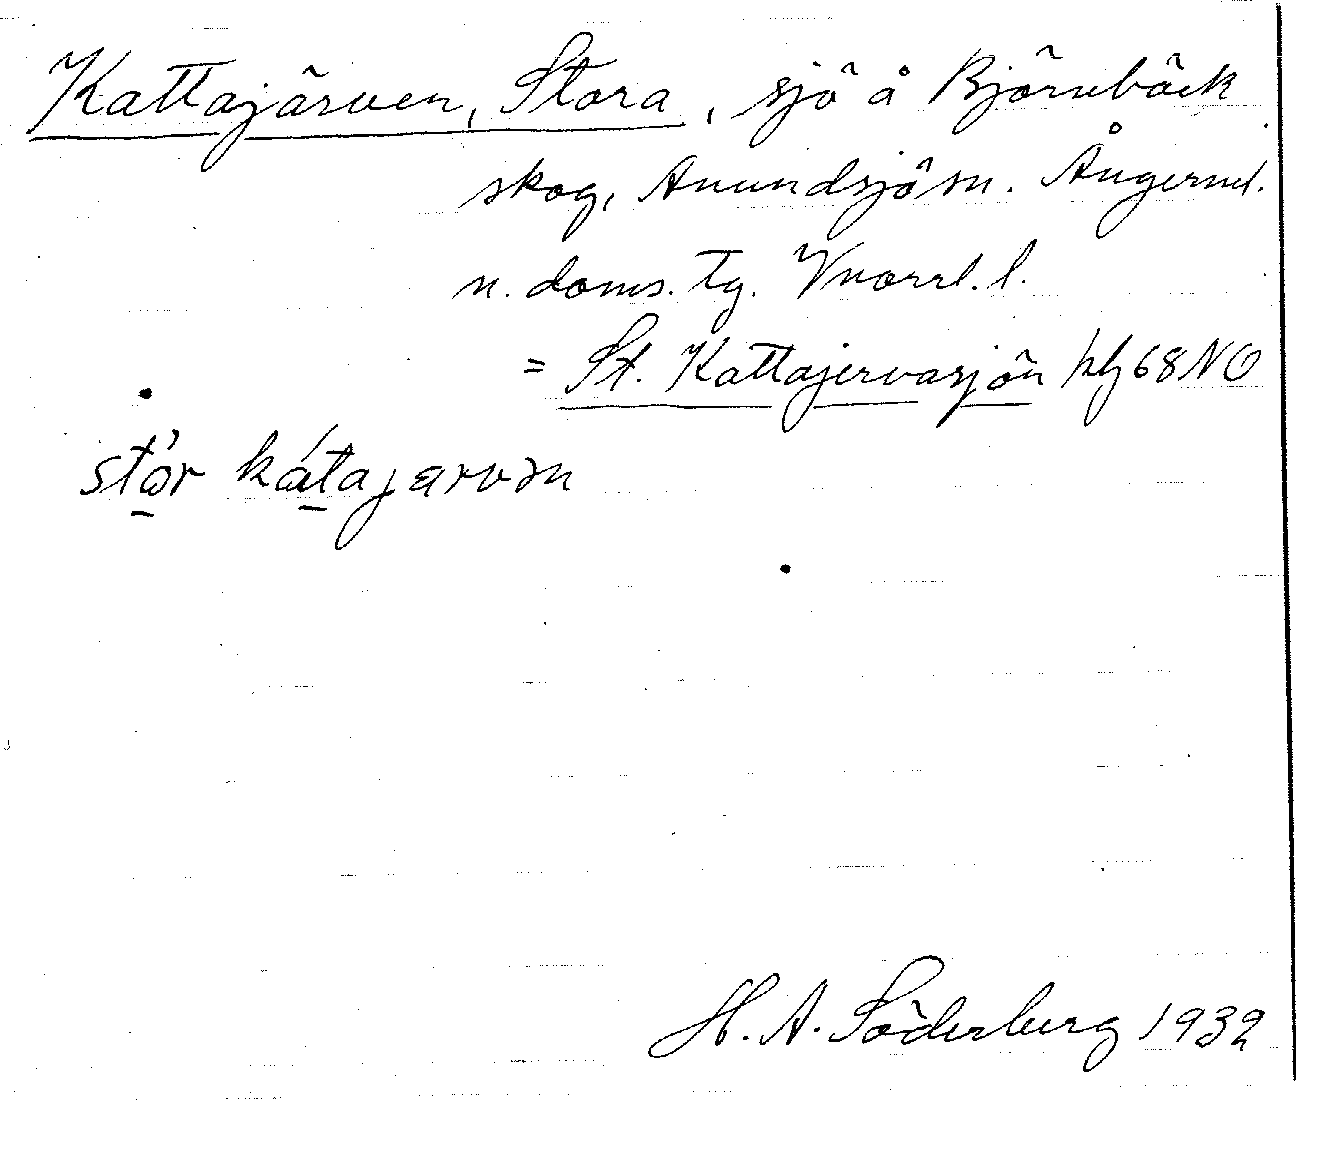 Kattajärven, Stora, sjö å Björnbäck
skog, Anundsjö sn. Ångerml.
n. doms. tg. Vnorrl. l.
= St. Kattajervasjön hbl 68 NO
stór kátajarvən
H. A. Söderberg 1932